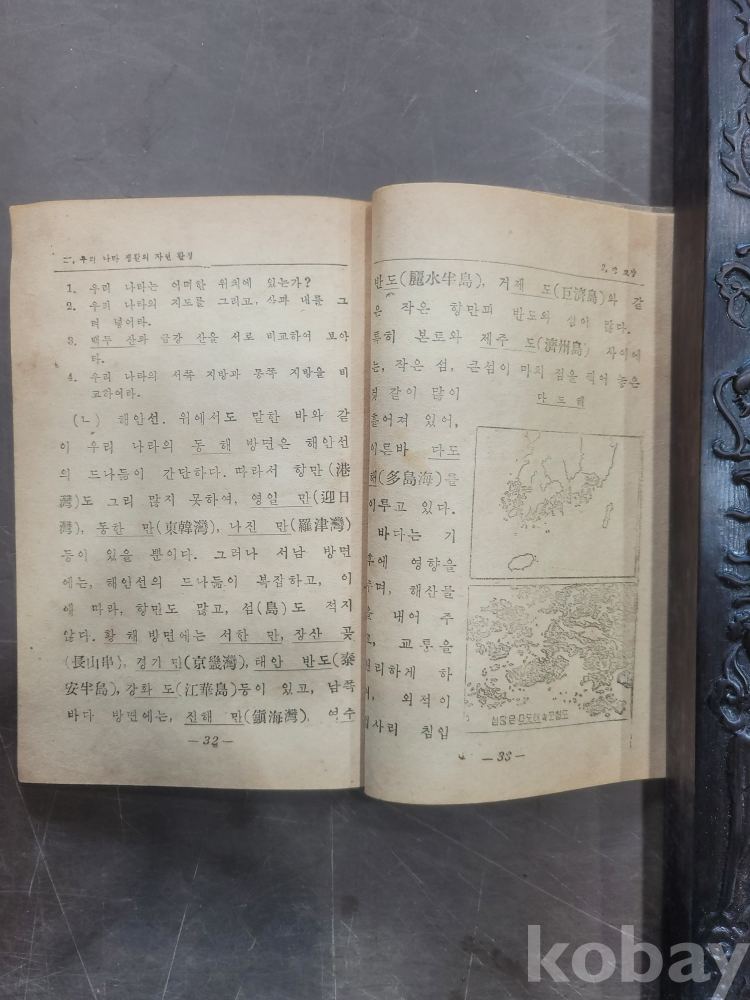 二. 우리 나라 생활의 자연 환경
1. 우리 나라는 어떠한 위치에 있는가?
2. 우리 나라의 지도를 그리고, 산과 내를 그
려 넣어라.
3. 백두 산과 금강 산을 서로 비교하여 보아
라.
4. 우리 나라의 서쪽 지방과 동쪽 지방을 비
교하여라.
(ㄴ) 해안선. 위에서도 말한 바와 같
이 우리 나라의 동 해 방면은 해안선
의 드나듦이 간단하다. 따라서 항만(港
灣)도 그리 많지 못하여, 영일 만(迎日
灣), 동한 만(東韓灣), 나진 만(羅津灣)
등이 있을 뿐이다. 그러나 서남 방면
에는, 해안선의 드나듦이 복잡하고, 이
에 따라, 항만도 많고, 섬(島)도 적지
않다. 황 해 방면에는 서한 만, 장산 곶
(長山串), 경기 만(京畿灣), 태안 반도(泰
安半島), 강화 도(江華島)등이 있고, 남쪽
바다 방면에는, 진해 만(鎭海灣), 여수
—32—
반도(麗水半島), 거제 도(巨濟島)와 같
은 작은 항만과 반도와 섬이 많다.
특히 본토와 제주 도(濟州島) 사이에
는, 작은 섬, 큰섬이 마치 점을 찍어 놓은
것 같이 많이
흩어져 있어,
이른바 다도
해(多島海)를
이루고 있다.
바다는 기
후에 영향을
주며, 해산물
을 내어 주
고, 교통을
편리하게 하
며, 외적이
쉽사리 침입
—33—
kobay